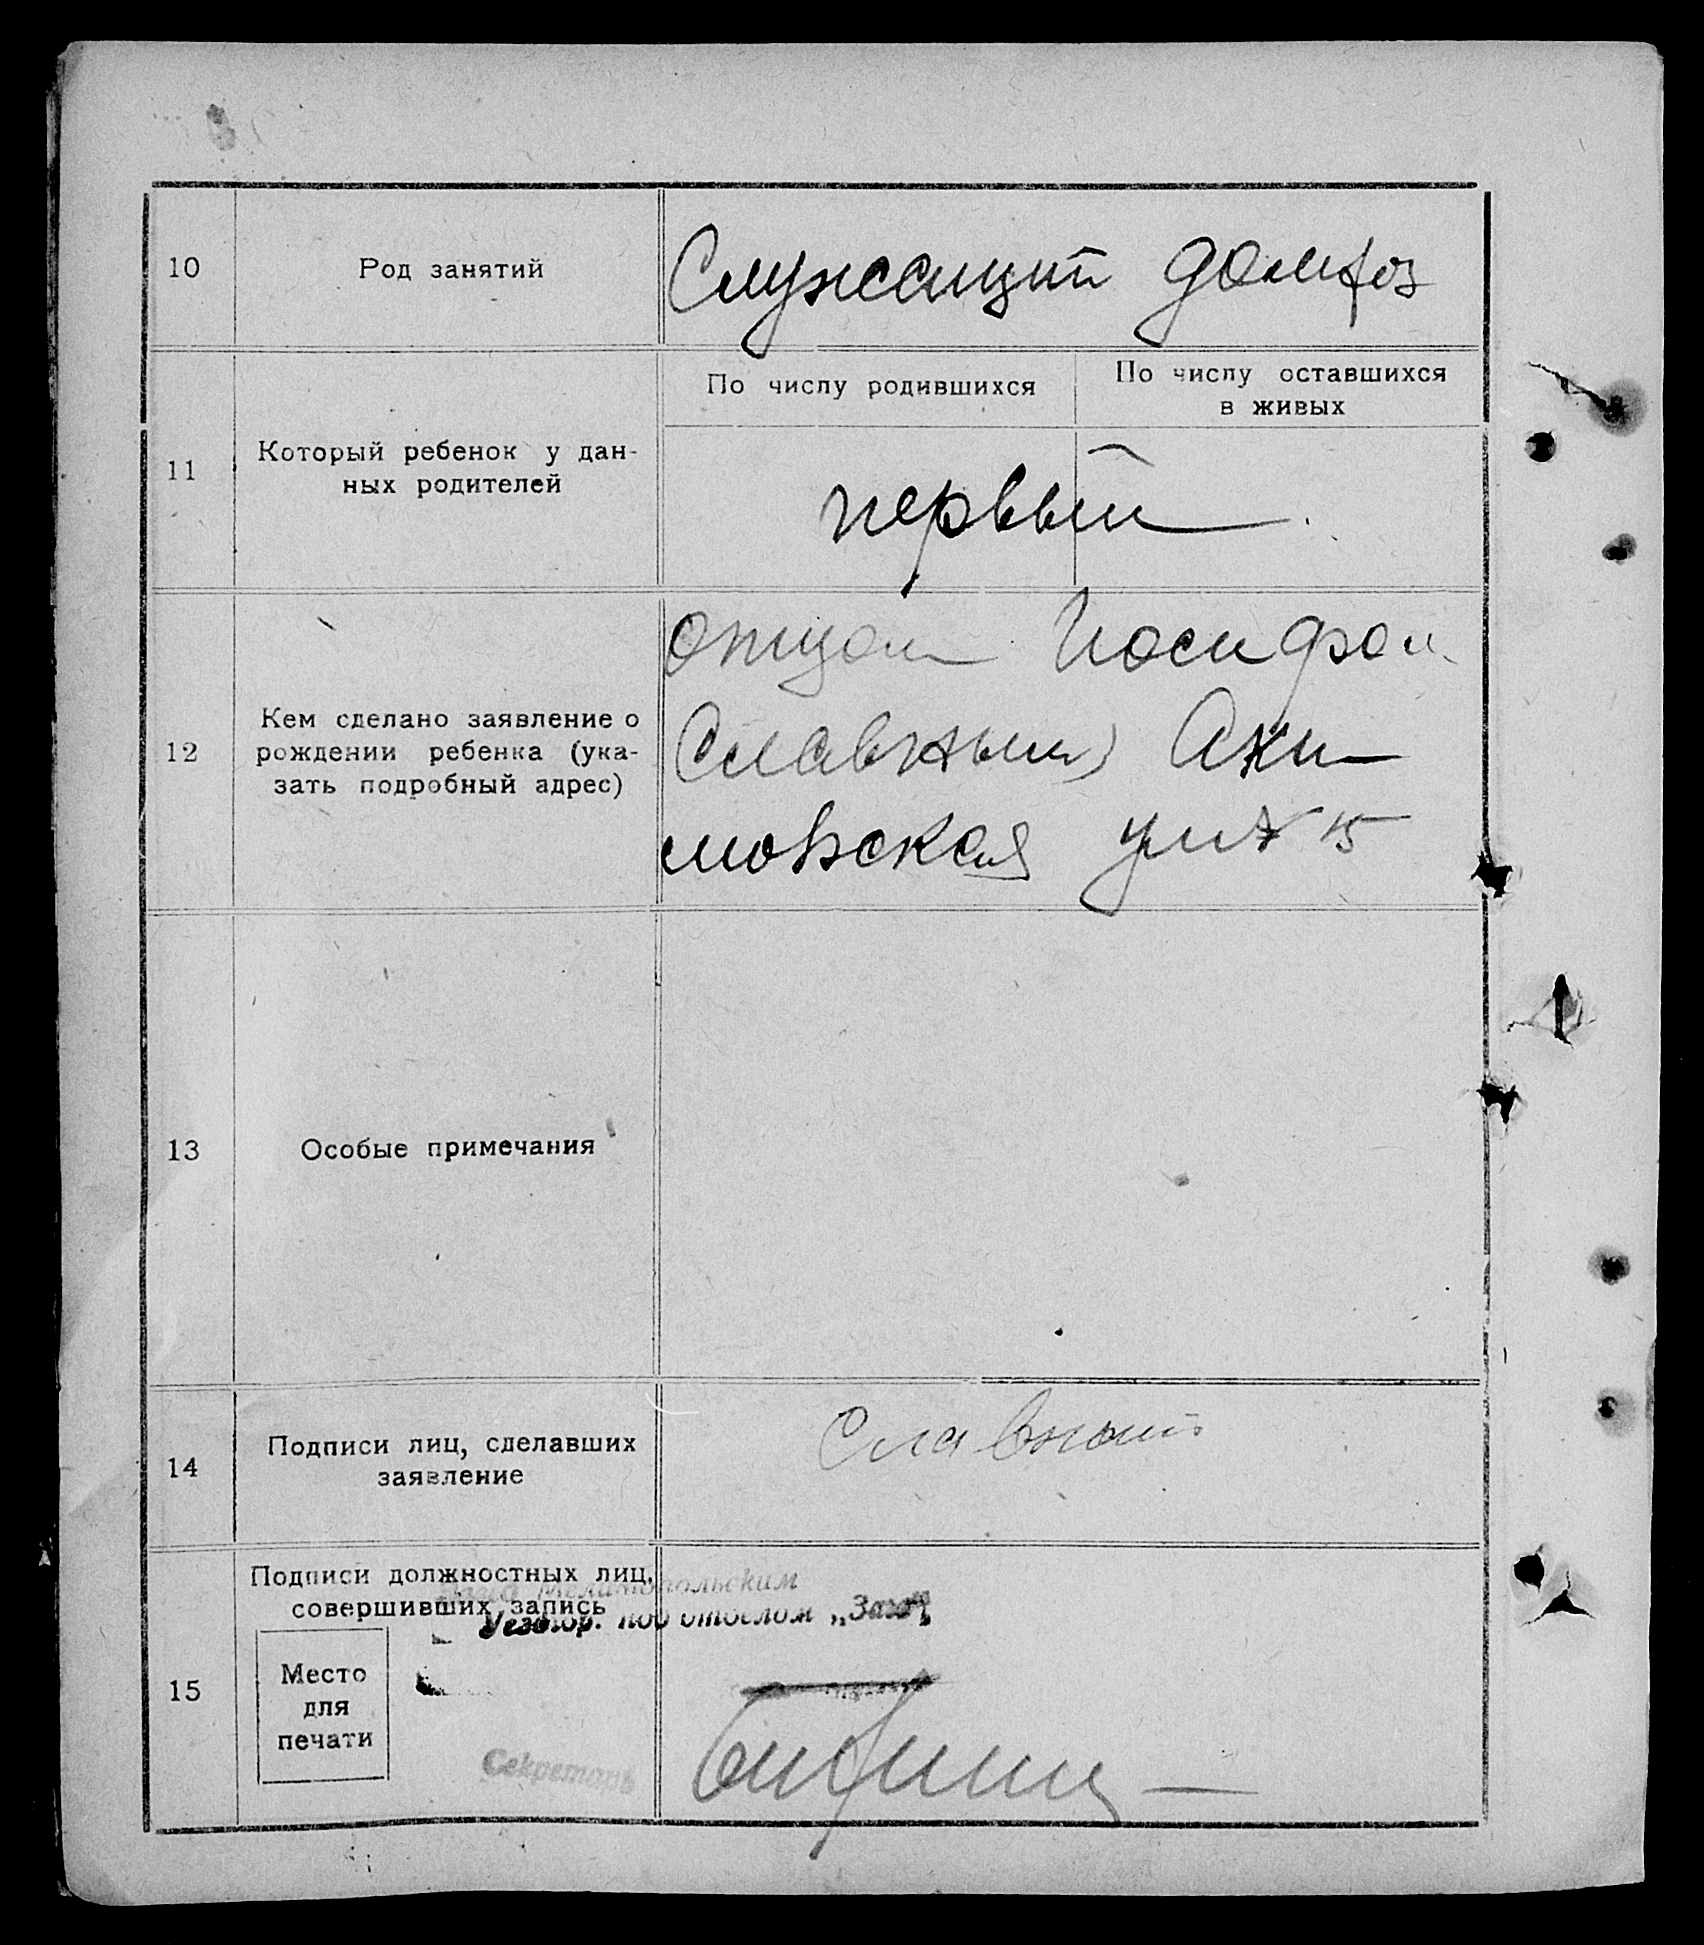 10
Род занятий
Служащий домхоз
11
Который ребенок у дан-
ных родителей
По числу родившихся
По числу оставшихся
в живых
первый
12
Кем сделано заявление о
рождении ребенка (ука-
зать подробный адрес)
отцом Иосифом
Славным Аки-
мовская ул № 15
13
Особые примечания
14
Подписи лиц, сделавших
заявление
Славный
15
Подписи должностных лиц,
совершивших запись
Мелитопольским
под отделом „Загс"
Место
для
печати
Секретарь